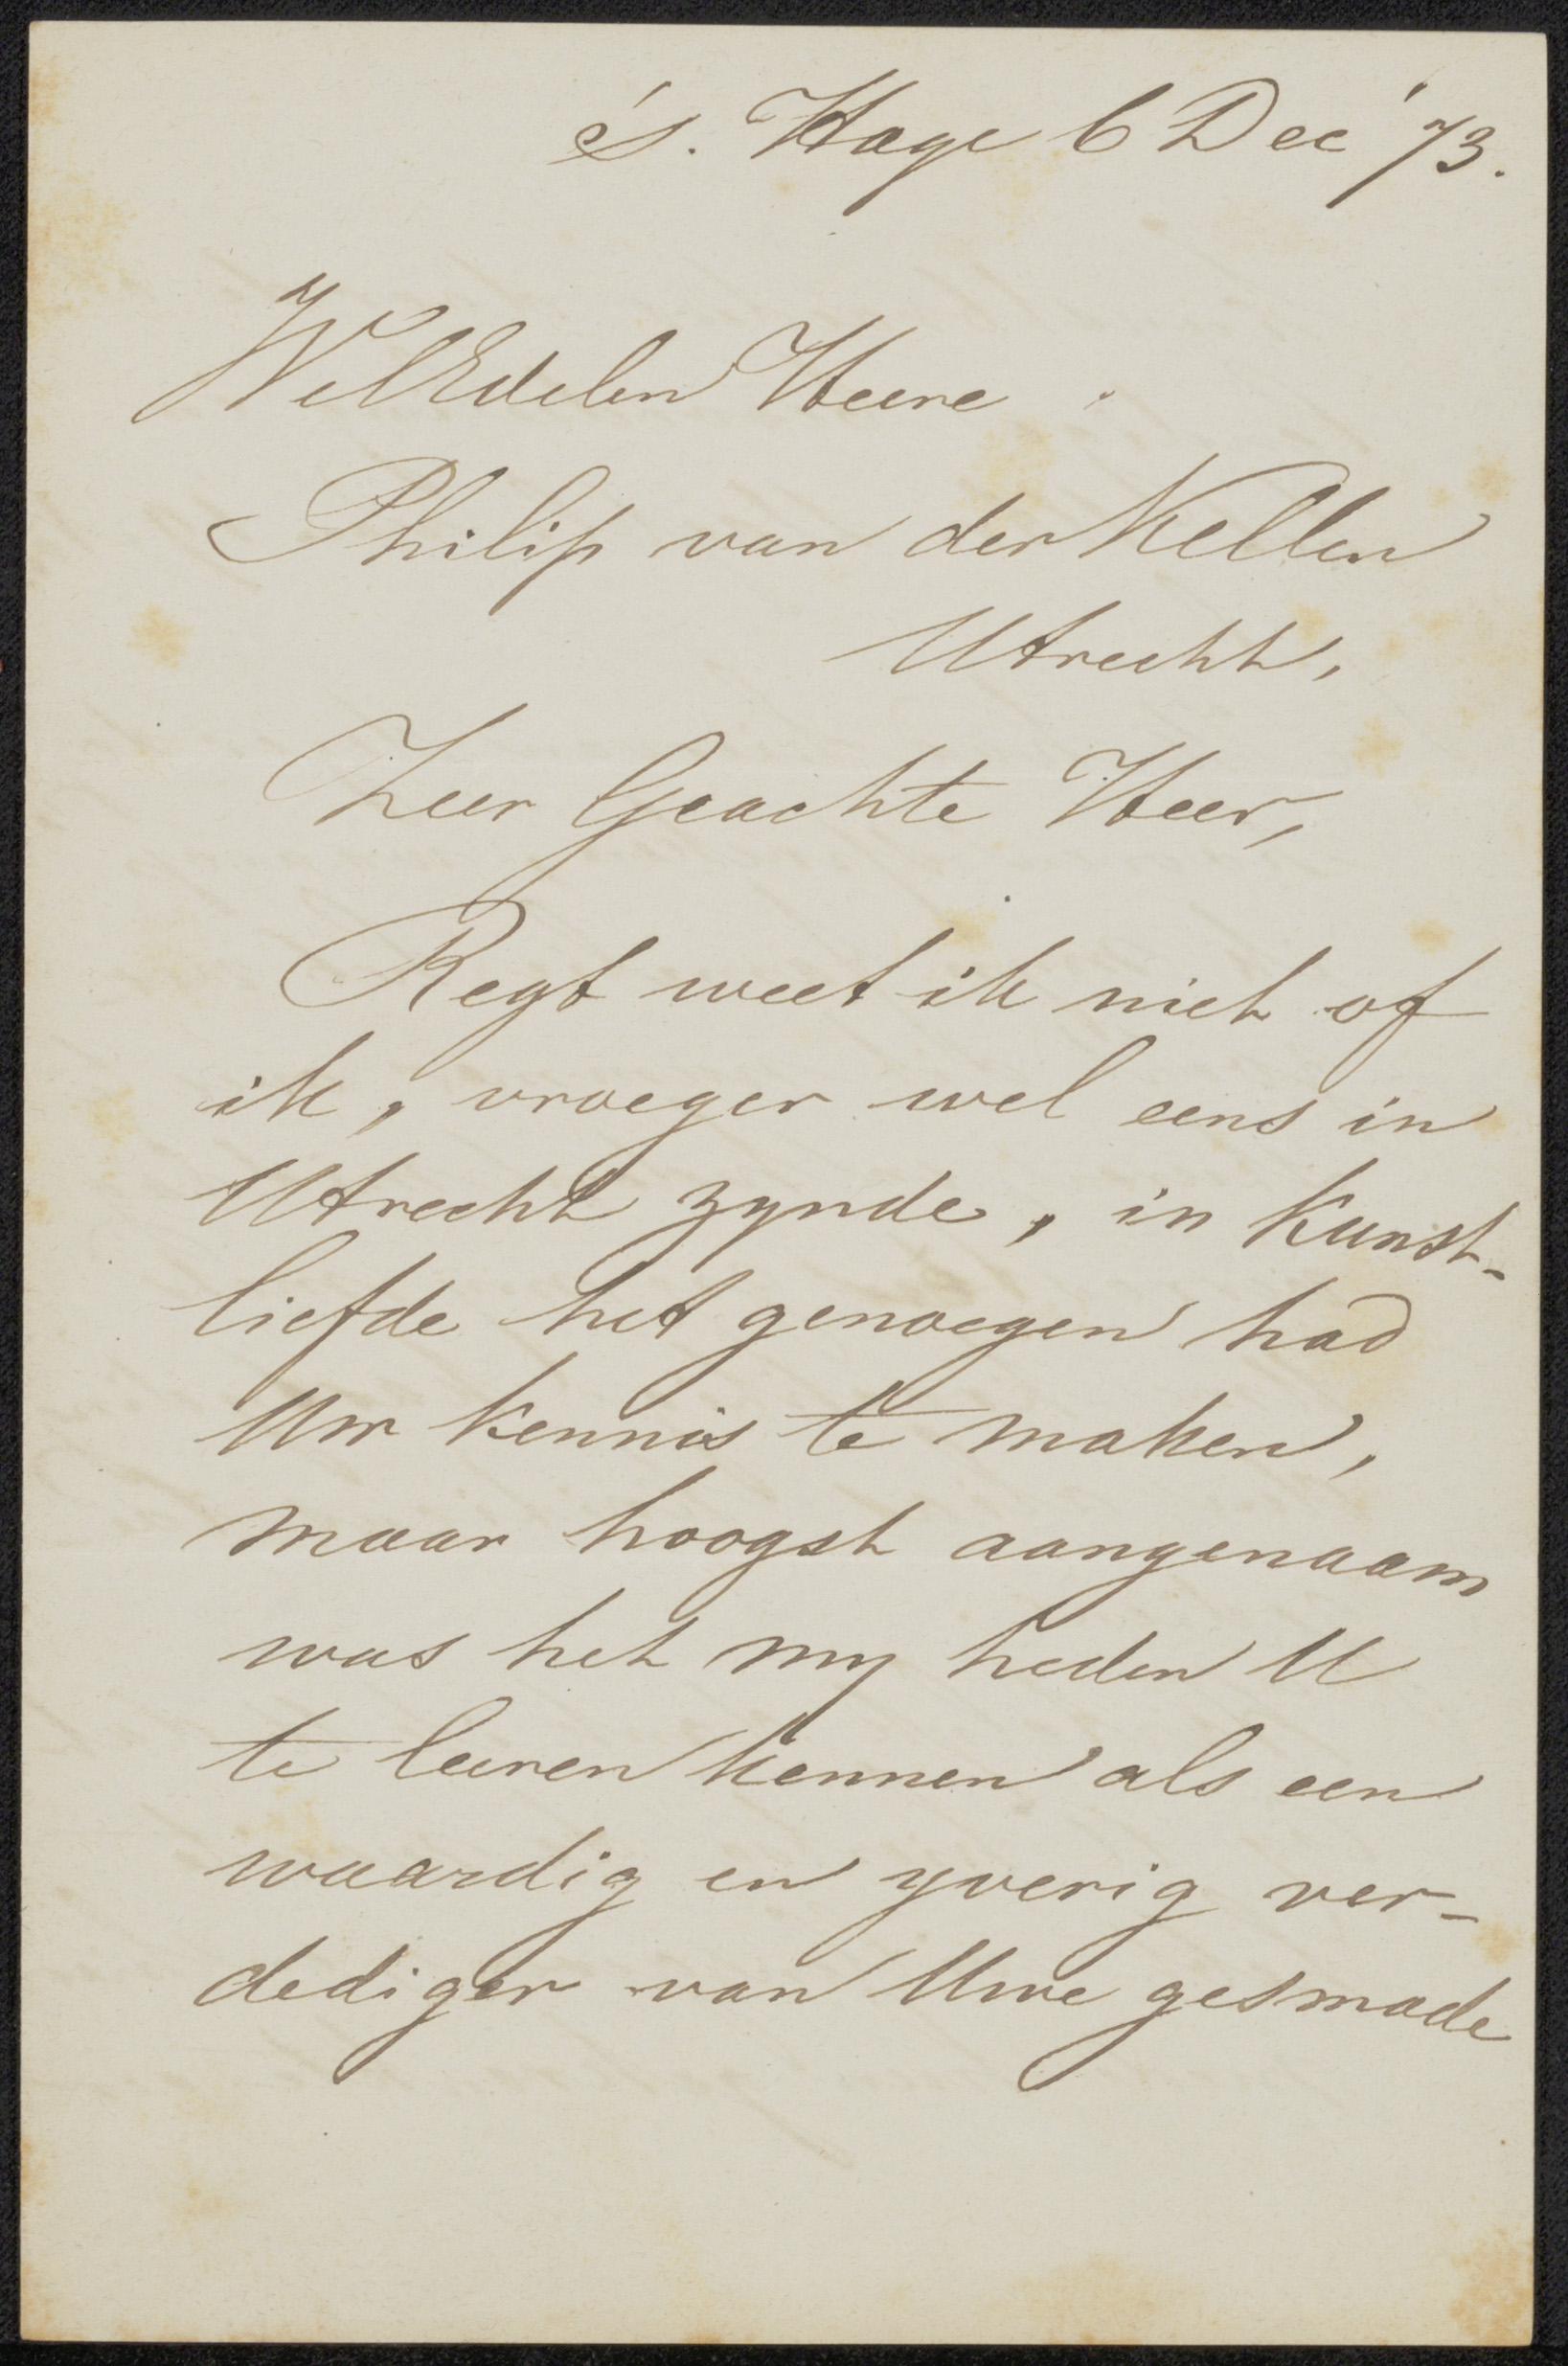 's. Hage 6 Dec '73.
WelEdelen Heere
Philip van der Kellen
Utrecht,
Zeer Geachte Heer,
Regt weet ik niet of
ik, vroeger wel eens in
Utrecht zynde, in Kunst-
liefde het genoegen had
Uw kennis te maken,
maar hoogst aangenaam
was het my heden U
te leeren kennen als een
waardig en yverig ver-
dediger van Uwe gesmade